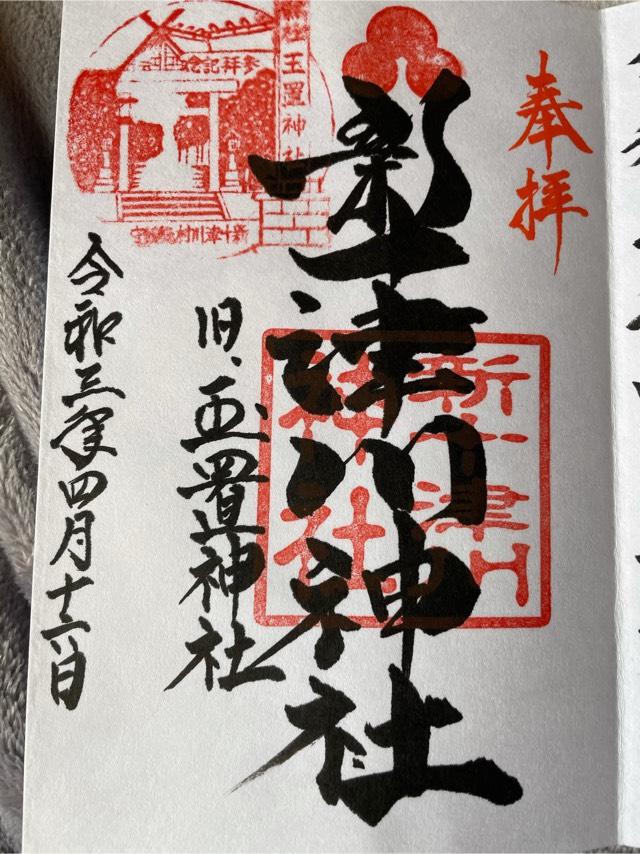 奉拝
新十津川神社
旧、玉置神社
令和三年四月十六日
新十津川
神社
参拝記念
神社玉置神社